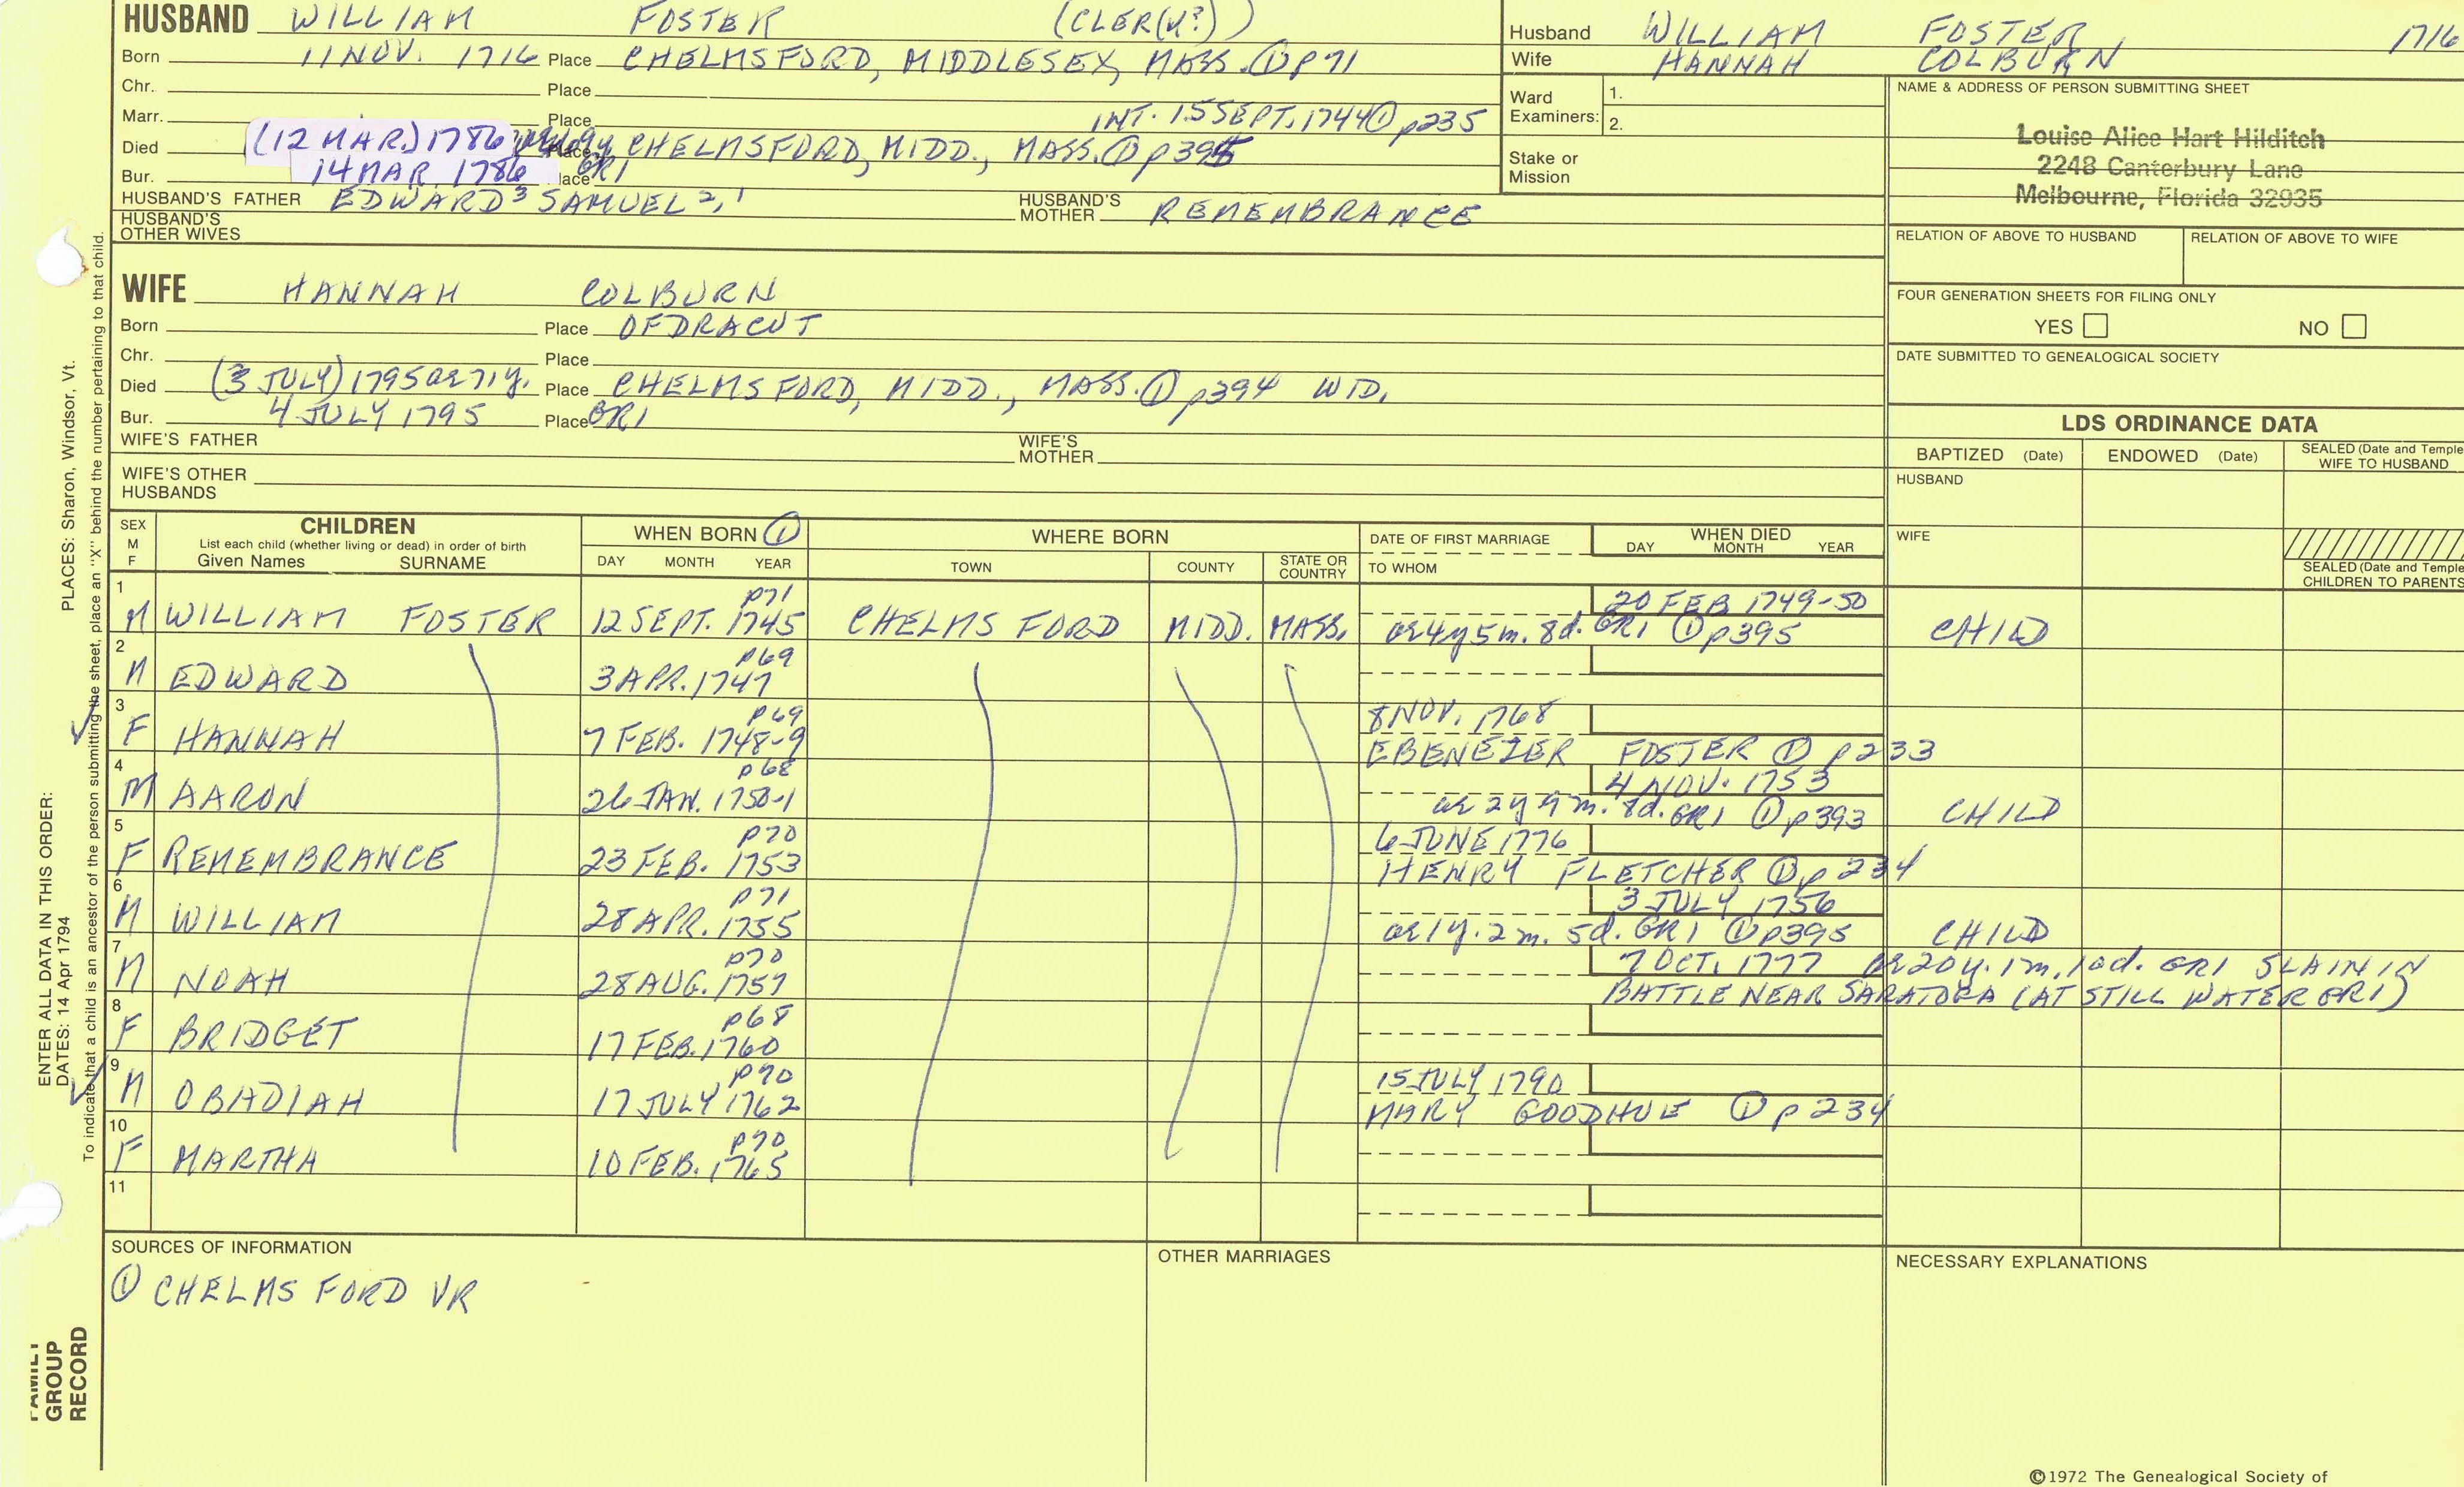 HUSBAND WILLIAM FOSTER (CLER(K?))
Born 11 NOV. 1716 Place CHELMSFORD, MIDDLESEX, MASS. ① p71
Chr. Place
Marr. Place INT. 15 SEPT. 1744 ① p235
Died (12 MAR.) 1786 Place CHELMSFORD, MIDD., MASS. ① p395
Bur. 14 MAR. 1786 Place GR1
HUSBAND'S FATHER EDWARD³ SAMUEL ²,¹ HUSBAND'S MOTHER REMEMBRANCE
HUSBAND'S OTHER WIVES
Husband WILLIAM FOSTER 1716
Wife HANNAH COLBURN
Ward Examiners: 1.
2.
Stake or Mission
NAME & ADDRESS OF PERSON SUBMITTING SHEET
Louise Alice Hart Hilditch
2248 Canterbury Lane
Melbourne, Florida 32935
RELATION OF ABOVE TO HUSBAND RELATION OF ABOVE TO WIFE
FOUR GENERATION SHEETS FOR FILING ONLY
YES NO
DATE SUBMITTED TO GENEALOGICAL SOCIETY
WIFE HANNAH COLBURN
Born Place OF DRACUT
Chr. Place
Died (3 JULY) 1795 ae 71y. Place CHELMSFORD, MIDD., MASS. ① p394 WID.
Bur. 4 JULY 1795 Place GR1
WIFE'S FATHER WIFE'S MOTHER
WIFE'S OTHER HUSBANDS
LDS ORDINANCE DATA
BAPTIZED (Date) ENDOWED (Date) SEALED (Date and Temple WIFE TO HUSBAND
HUSBAND
WIFE
SEALED (Date and Temple CHILDREN TO PARENTS
SEX M F CHILDREN WHEN BORN ① WHERE BORN DATE OF FIRST MARRIAGE WHEN DIED
List each child (whether living or dead) in order of birth
Given Names SURNAME DAY MONTH YEAR TOWN COUNTY STATE OR COUNTRY TO WHOM DAY MONTH YEAR
1 p71 20 FEB 1749-50
M WILLIAM FOSTER 12 SEPT. 1745 CHELMSFORD MIDD. MASS. ae 4y 5m. 8d. GR1 ① p395 CHILD
2 p69
M EDWARD 3 APR. 1747
3 p69 8 NOV. 1768
F HANNAH 7 FEB. 1748-9 EBENEZER FOSTER ① p233
4 p68 4 NOV. 1753
M AARON 26 JAN. 1750-1 ae 2y 9m. 8d. GR1 ① p393 CHILD
5 p70 6 JUNE 1776
F REMEMBRANCE 23 FEB. 1753 HENRY FLETCHER ① p234
6 p71 3 JULY 1756
M WILLIAM 28 APR. 1755 ae 1y. 2m. 5d. GR1 ① p395 CHILD
7 p70 7 OCT. 1777 ae 20y. 1m. 10d. GR1 SLAIN IN
M NOAH 28 AUG. 1757 BATTLE NEAR SARATOGA (AT STILL WATER GR1)
8 p68
F BRIDGET 17 FEB. 1760
9 p70 15 JULY 1790
M OBADIAH 17 JULY 1762 MARY GOODHUE ① p234
10 p70
F MARTHA 10 FEB. 1765
11
SOURCES OF INFORMATION OTHER MARRIAGES NECESSARY EXPLANATIONS
① CHELMSFORD VR
©1972 The Genealogical Society of
PLACES: Sharon, Windsor, Vt.
ENTER ALL DATA IN THIS ORDER:
DATES: 14 Apr 1794
To indicate that a child is an ancestor of the person submitting the sheet, place an "X" behind the number pertaining to that child.
FAMILY GROUP RECORD